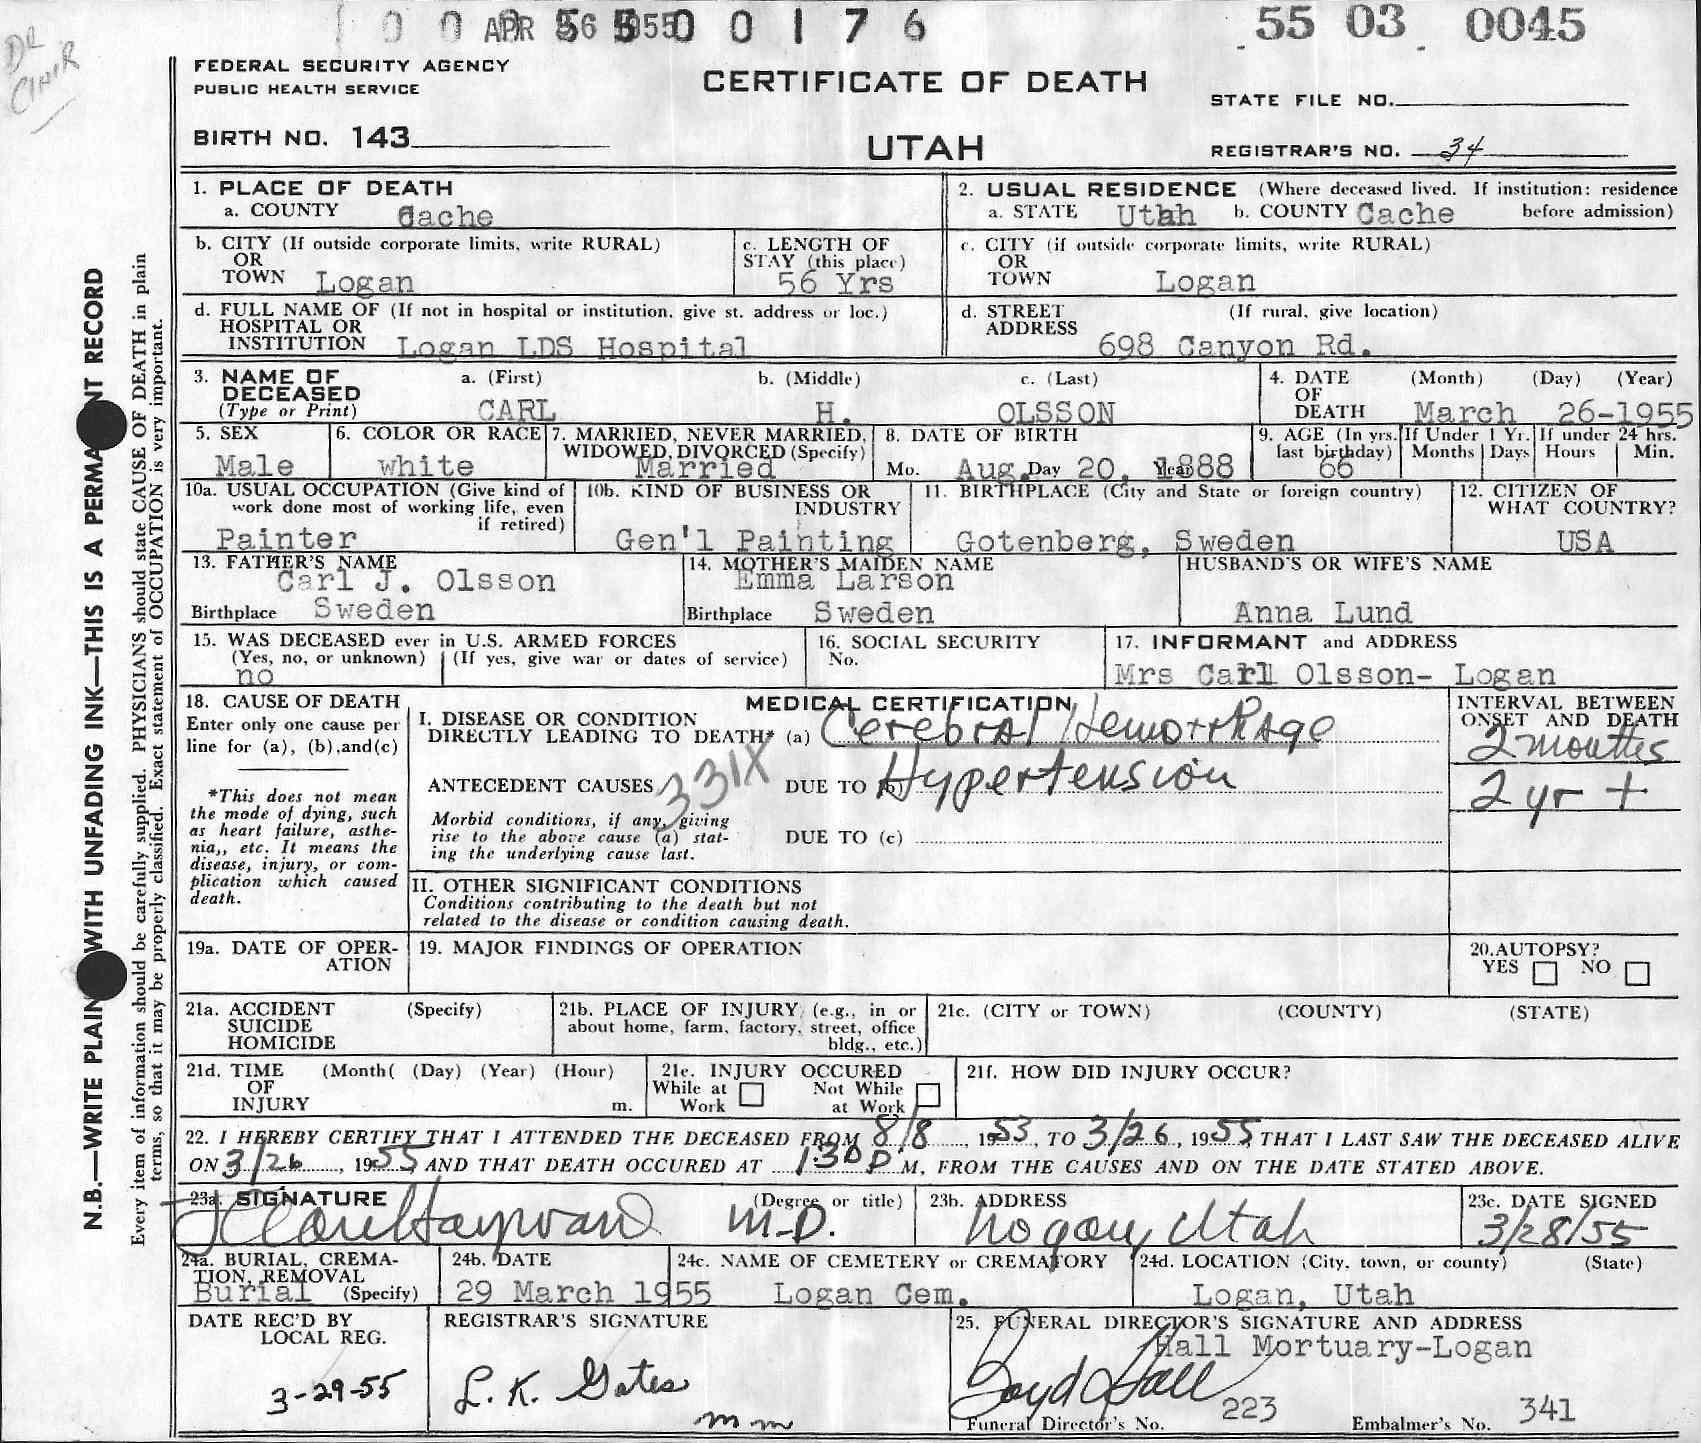 APR 26 1955
0 0 5 5 0 0 1 7 6
55 03 0045
DR
CLAIR
FEDERAL SECURITY AGENCY
PUBLIC HEALTH SERVICE
CERTIFICATE OF DEATH
STATE FILE NO.
BIRTH NO. 143
UTAH
REGISTRAR'S NO. 34
N.B.—WRITE PLAIN WITH UNFADING INK—THIS IS A PERMA NT RECORD
Every item of information should be carefully supplied. PHYSICIANS should state CAUSE OF DEATH in plain
terms, so that it may be properly classified. Exact statement of OCCUPATION is very important.
1. PLACE OF DEATH
a. COUNTY Cache
2. USUAL RESIDENCE (Where deceased lived. If institution: residence
a. STATE Utah b. COUNTY Cache before admission)
b. CITY (If outside corporate limits, write RURAL)
OR
TOWN Logan
c. LENGTH OF
STAY (this place)
56 Yrs
c. CITY (if outside corporate limits, write RURAL)
OR
TOWN Logan
d. FULL NAME OF (If not in hospital or institution, give st. address or loc.)
HOSPITAL OR
INSTITUTION Logan LDS Hospital
d. STREET (If rural, give location)
ADDRESS
698 Canyon Rd.
3. NAME OF a. (First) b. (Middle) c. (Last)
DECEASED
(Type or Print) CARL H. OLSSON
4. DATE (Month) (Day) (Year)
OF
DEATH March 26-1955
5. SEX
Male
6. COLOR OR RACE
white
7. MARRIED, NEVER MARRIED,
WIDOWED, DIVORCED (Specify)
Married
8. DATE OF BIRTH
Mo. Aug. Day 20, Year 1888
9. AGE (In yrs.
last birthday)
66
If Under 1 Yr.
Months Days
If under 24 hrs.
Hours Min.
10a. USUAL OCCUPATION (Give kind of
work done most of working life, even
if retired)
Painter
10b. KIND OF BUSINESS OR
INDUSTRY
Gen'l Painting
11. BIRTHPLACE (City and State or foreign country)
Gotenberg, Sweden
12. CITIZEN OF
WHAT COUNTRY?
USA
13. FATHER'S NAME
Carl J. Olsson
Birthplace Sweden
14. MOTHER'S MAIDEN NAME
Emma Larson
Birthplace Sweden
HUSBAND'S OR WIFE'S NAME
Anna Lund
15. WAS DECEASED ever in U.S. ARMED FORCES
(Yes, no, or unknown) (If yes, give war or dates of service)
no
16. SOCIAL SECURITY
No.
17. INFORMANT and ADDRESS
Mrs Carl Olsson- Logan
18. CAUSE OF DEATH
Enter only one cause per
line for (a), (b),and(c)
*This does not mean
the mode of dying, such
as heart failure, asthe-
nia,, etc. It means the
disease, injury, or com-
plication which caused
death.
MEDICAL CERTIFICATION
I. DISEASE OR CONDITION
DIRECTLY LEADING TO DEATH* (a) Cerebral Hemorrhage
ANTECEDENT CAUSES 331X DUE TO (b) Hypertension
Morbid conditions, if any, giving
rise to the above cause (a) stat-
ing the underlying cause last.
DUE TO (c)
INTERVAL BETWEEN
ONSET AND DEATH
2 months
2 yr +
II. OTHER SIGNIFICANT CONDITIONS
Conditions contributing to the death but not
related to the disease or condition causing death.
19a. DATE OF OPER-
ATION
19. MAJOR FINDINGS OF OPERATION
20.AUTOPSY?
YES NO
21a. ACCIDENT (Specify)
SUICIDE
HOMICIDE
21b. PLACE OF INJURY (e.g., in or
about home, farm, factory, street, office
bldg., etc.)
21c. (CITY or TOWN) (COUNTY) (STATE)
21d. TIME (Month( (Day) (Year) (Hour)
OF
INJURY m.
21e. INJURY OCCURED
While at Not While
Work at Work
21f. HOW DID INJURY OCCUR?
22. I HEREBY CERTIFY THAT I ATTENDED THE DECEASED FROM 8/8, 1953, TO 3/26, 1955 THAT I LAST SAW THE DECEASED ALIVE
ON 3/26, 1955 AND THAT DEATH OCCURED AT 1:30 P M, FROM THE CAUSES AND ON THE DATE STATED ABOVE.
23a. SIGNATURE (Degree or title)
J Clare Hayward M.D.
23b. ADDRESS
Logan, Utah
23c. DATE SIGNED
3/28/55
24a. BURIAL, CREMA-
TION, REMOVAL
Burial (Specify)
24b. DATE
29 March 1955
24c. NAME OF CEMETERY or CREMATORY
Logan Cem.
24d. LOCATION (City, town, or county) (State)
Logan, Utah
DATE REC'D BY
LOCAL REG.
3-29-55
REGISTRAR'S SIGNATURE
L. K. Gates
mm
25. FUNERAL DIRECTOR'S SIGNATURE AND ADDRESS
Hall Mortuary-Logan
Boyd Hall
Funeral Director's No. 223 Embalmer's No. 341